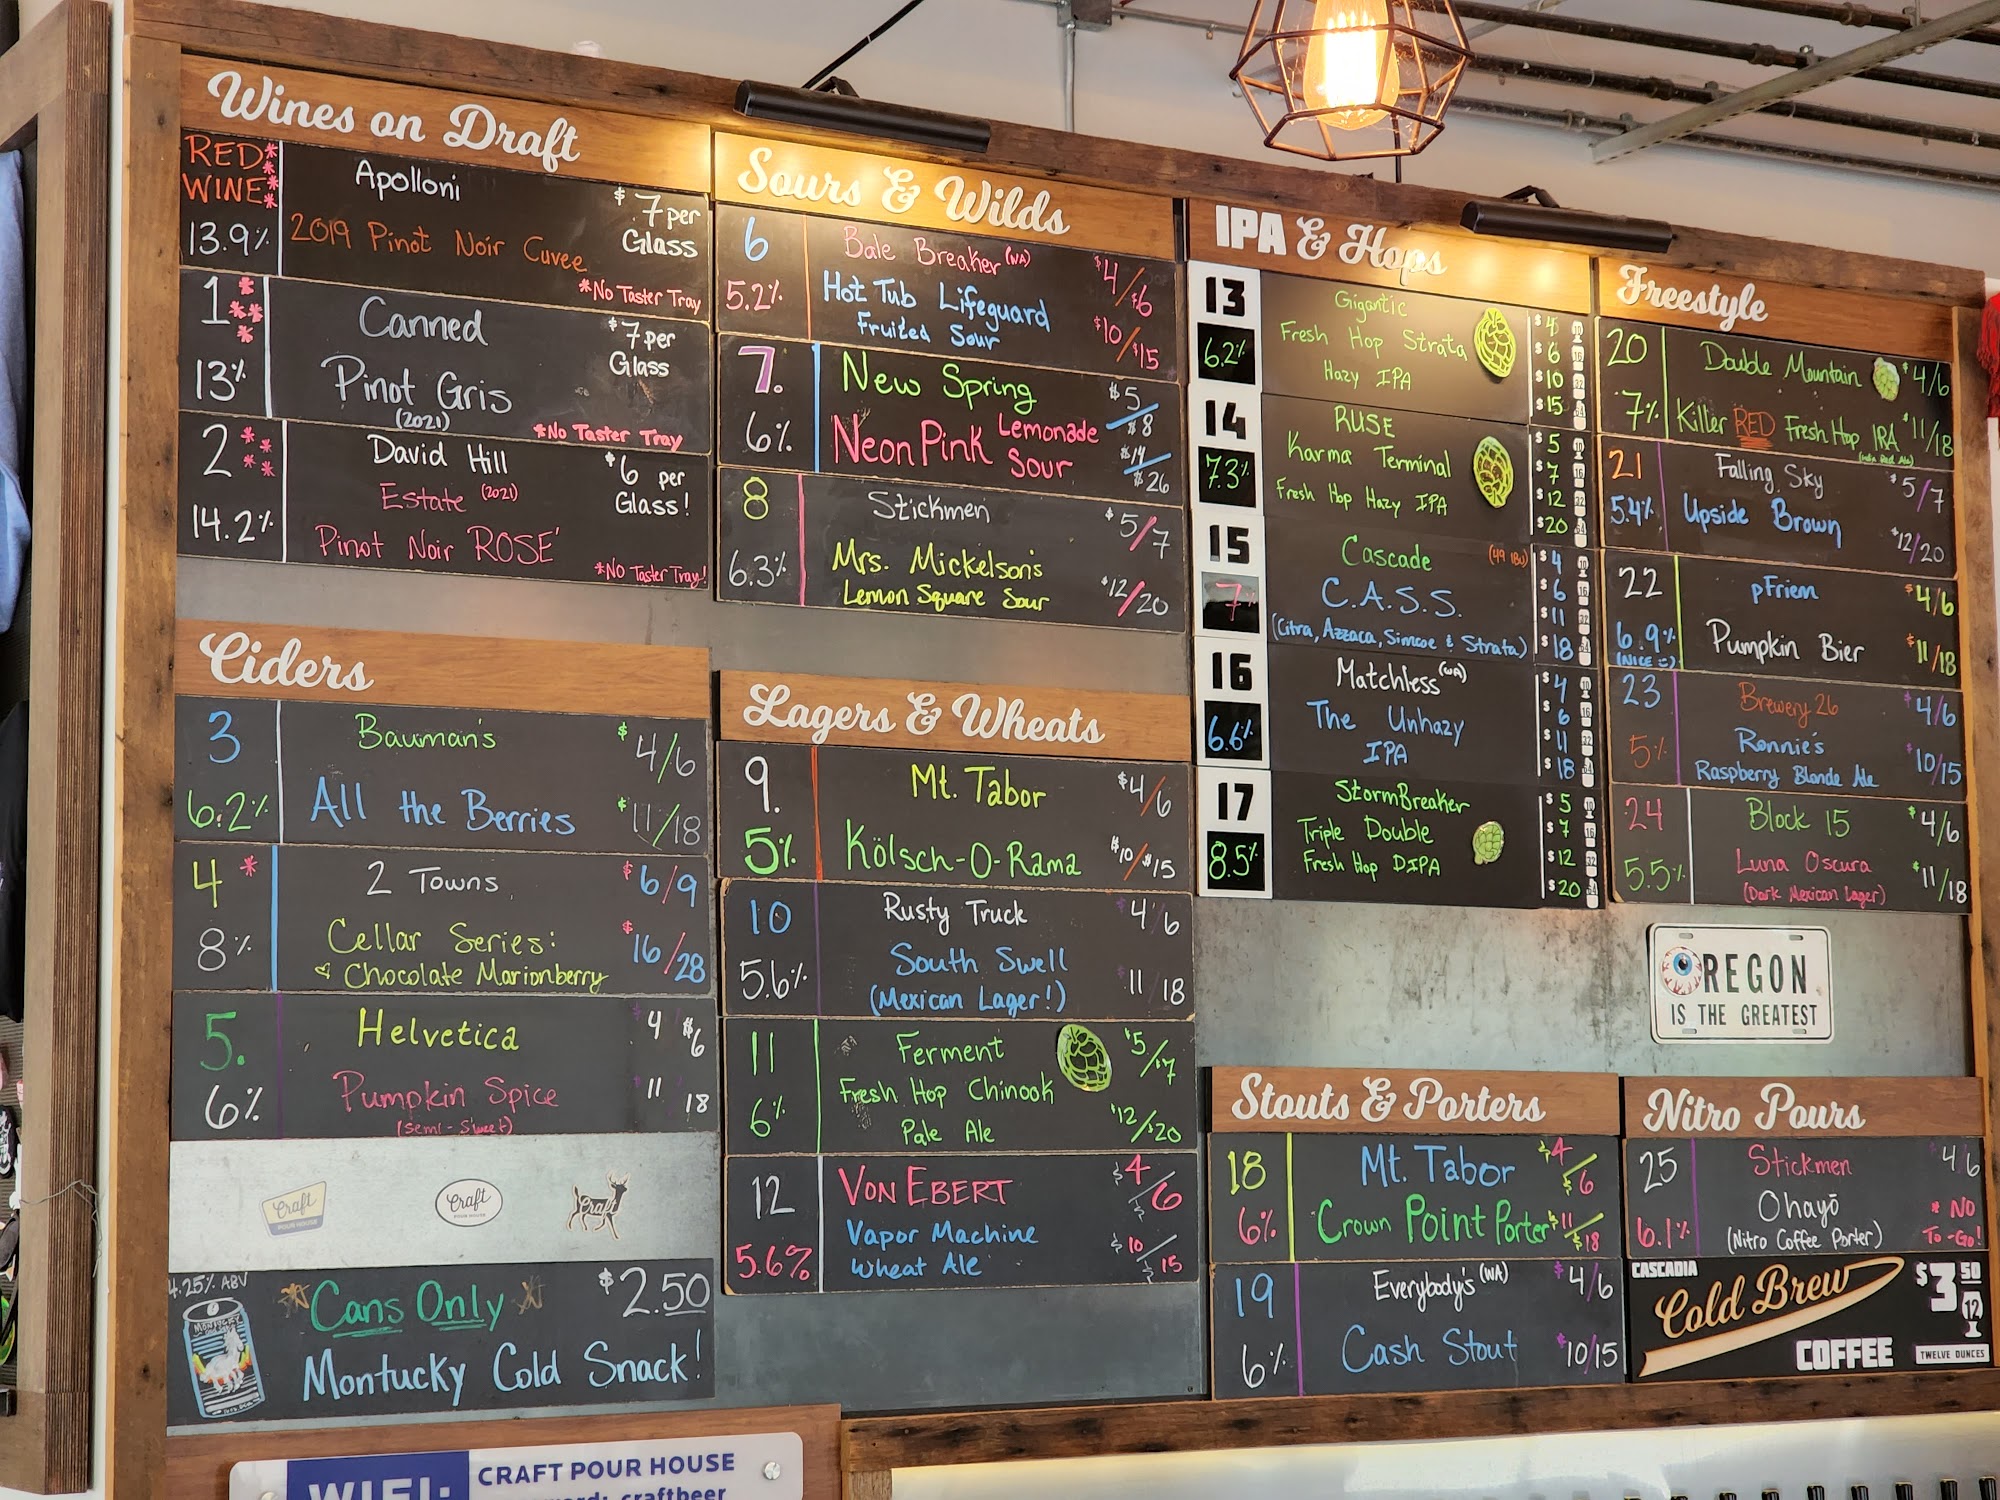 Wines on Draft
RED
WINE
13.9%
Apolloni
2019 Pinot Noir Cuvee
$7 per
Glass
*No Taster Tray
1
13%
Canned
Pinot Gris
(2021)
$7 per
Glass
*No Taster Tray
2
14.2%
David Hill
Estate (2021)
Pinot Noir ROSE'
$6 per
Glass!
*No Taster Tray!
Ciders
3
6.2%
Bauman's
All the Berries
$4/6
$11/18
4*
8%
2 Towns
Cellar Series:
Chocolate Marionberry
$6/9
$16/28
5.
6%
Helvetica
Pumpkin Spice
(Semi-Sweet)
4 $6
11 18
Craft
POUR HOUSE
Craft
POUR HOUSE
Craft
4.25% ABV
MONTUCKY
Cans Only
$2.50
Montucky Cold Snack!
WIFI:
CRAFT POUR HOUSE
craftbeer
Sours & Wilds
6
5.2%
Bale Breaker (WA)
Hot Tub Lifeguard
Fruited Sour
$4/$6
$10/$15
7.
6%
New Spring
Neon Pink Lemonade
Sour
$5
$8
$14
$26
8
6.3%
Stickmen
Mrs. Mickelson's
Lemon Square Sour
$5/7
$12/20
Lagers & Wheats
9.
5%
Mt. Tabor
Kölsch-O-Rama
$4/6
$10/$15
10
5.6%
Rusty Truck
South Swell
(Mexican Lager!)
4 6
11 18
11
6%
Ferment
Fresh Hop Chinook
Pale Ale
$5/$7
$12/$20
12
5.6%
VON EBERT
Vapor Machine
Wheat Ale
$4/$6
$10/$15
IPA & Hops
13
6.2%
Gigantic
Fresh Hop Strata
Hazy IPA
$4
$6
$10
$15
14
7.3%
RUSE
Karma Terminal
Fresh Hop Hazy IPA
$5
$7
$12
$20
15
7%
Cascade (49 IBU)
C.A.S.S.
(Citra, Azzaca, Simcoe & Strata)
$4
$6
$11
$18
16
6.6%
Matchless (WA)
The Unhazy
IPA
$4
$6
$11
$18
17
8.5%
StormBreaker
Triple Double
Fresh Hop DIPA
$5
$7
$12
$20
Freestyle
20
7%
Double Mountain
Killer RED Fresh Hop IRA
(India Red Ale)
$4/6
$11/18
21
5.4%
Falling Sky
Upside Brown
$5/7
$12/20
22
6.9%
(NICE :))
pFriem
Pumpkin Bier
$4/6
$11/18
23
5%
Brewery 26
Ronnie's
Raspberry Blonde Ale
$4/6
$10/15
24
5.5%
Block 15
Luna Oscura
(Dark Mexican Lager)
$4/6
$11/18
OREGON
IS THE GREATEST
Stouts & Porters
18
6%
Mt. Tabor
Crown Point Porter
$4/$6
$11/$18
19
6%
Everybody's (WA)
Cash Stout
$4/6
$10/15
Nitro Pours
25
6.1%
Stickmen
Ohayō
(Nitro Coffee Porter)
4/6
* NO
To-Go!
CASCADIA
Cold Brew
COFFEE
$3 50
12
TWELVE OUNCES